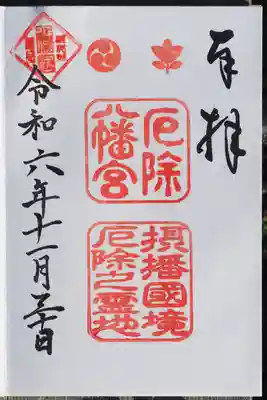 奉拝
厄除
八幡宮
摂播國境
厄除之霊地
令和六年十一月三十日